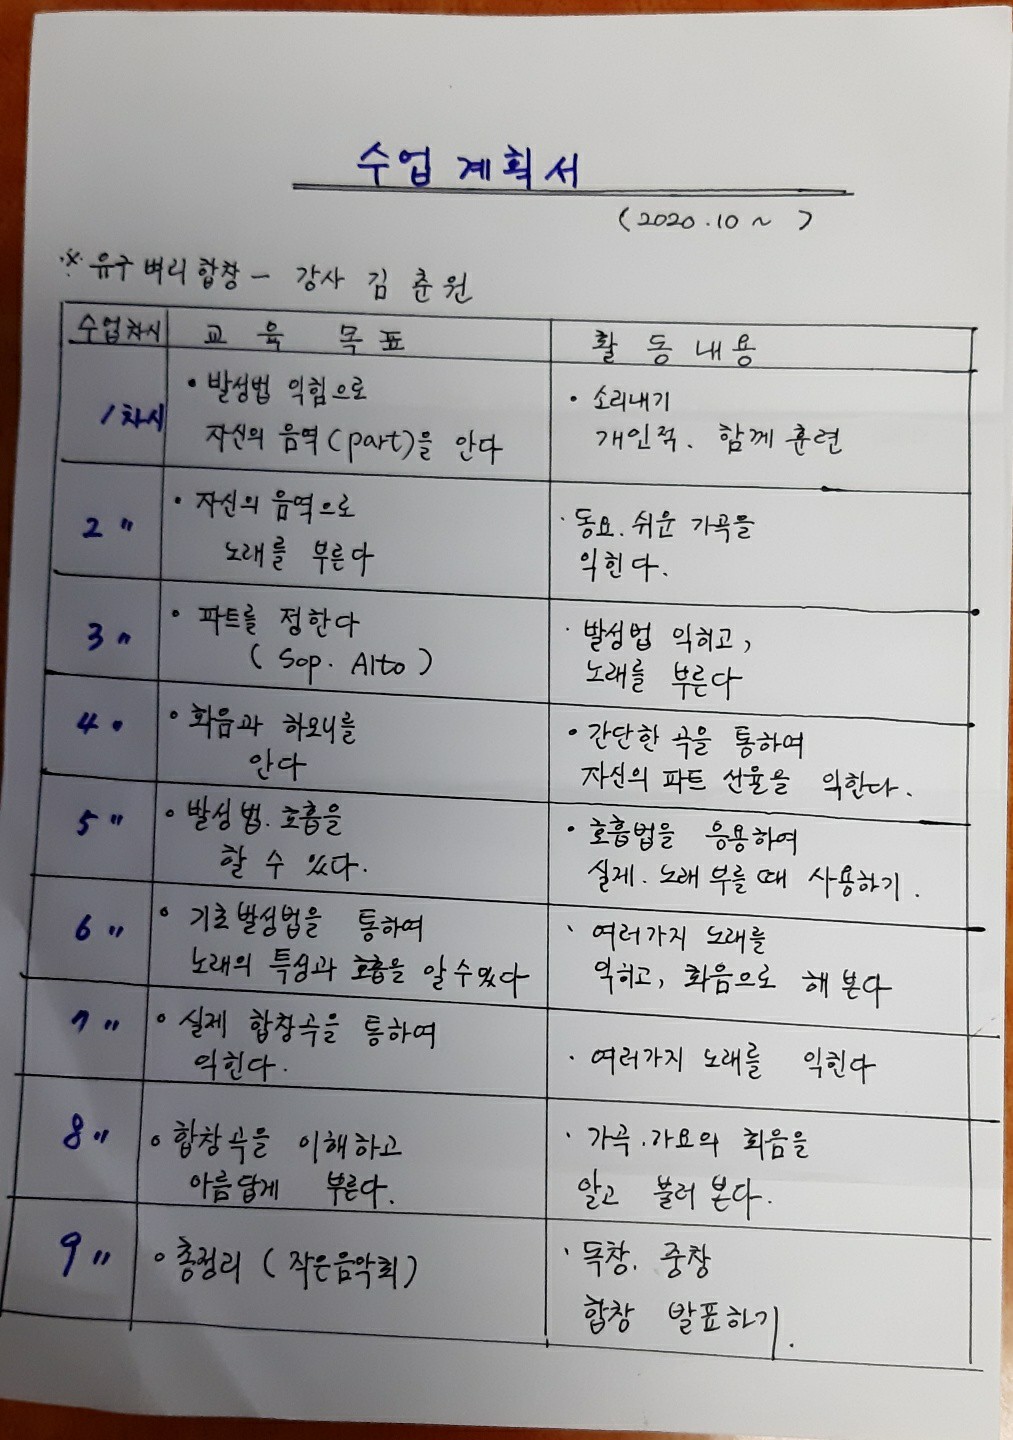 수업 계획서
(2020.10 ~ )
※ 유구 벼리합창 - 강사 김춘원
수업차시 교육 목표 활동내용
1차시
• 발성법 익힘으로
자신의 음역(part)을 안다
• 소리내기
개인적. 함께 훈련
2 〃
• 자신의 음역으로
노래를 부른다
· 동요. 쉬운 가곡을
익힌다.
3 〃
• 파트를 정한다
( Sop. Alto )
· 발성법 익히고,
노래를 부른다
4 •
• 화음과 하모니를
안다
• 간단한 곡을 통하여
자신의 파트 선율을 익한다.
5 〃
• 발성법. 호흡을
할 수 있다.
• 호흡법을 응용하여
실제. 노래 부를 때 사용하기.
6 〃
• 기초발성법을 통하여
노래의 특성과 호흡을 알 수 있다
· 여러가지 노래를
익히고, 화음으로 해 본다
7 〃
• 실제 합창곡을 통하여
익힌다.
· 여러가지 노래를 익힌다
8 〃
• 합창곡을 이해하고
아름답게 부른다.
· 가곡.가요의 화음을
알고 불러 본다.
9 〃
• 총정리 ( 작은음악회 )
· 독창. 중창
합창 발표하기.